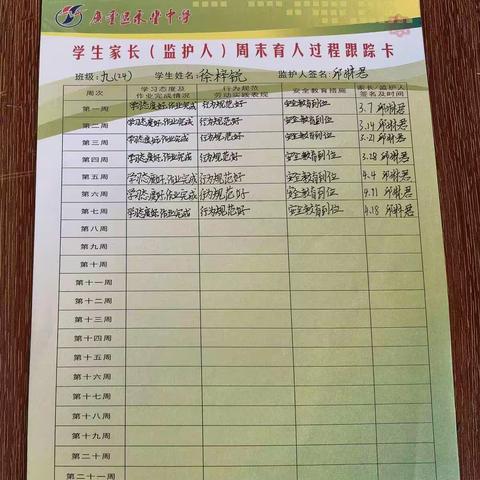 重庆巴永川中学
学生家长（监护人）周末育人过程跟踪卡
班级：九(24) 学生姓名：徐梓锐 监护人签名：邱林君
周次 学习态度及作业完成情况 行为规范劳动实践表现 安全教育措施 家长/监护人签名及时间
第一周 学习态度好,作业完成 行为规范好 安全教育到位 3.7 邱林君
第二周 学习态度好,作业完成 行为规范好 安全教育到位 3.14 邱林君
第三周 学习态度好,作业完成 行为规范好 安全教育到位 3.21 邱林君
第四周 学习态度好,作业完成 行为规范好 安全教育到位 3.28 邱林君
第五周 学习态度好,作业完成 行为规范好 安全教育到位 4.4 邱林君
第六周 学习态度好,作业完成 行为规范好 安全教育到位 4.11 邱林君
第七周 学习态度好,作业完成 行为规范好 安全教育到位 4.18 邱林君
第八周
第九周
第十周
第十一周
第十二周
第十三周
第十四周
第十五周
第十六周
第十七周
第十八周
第十九周
第二十周
第二十一周